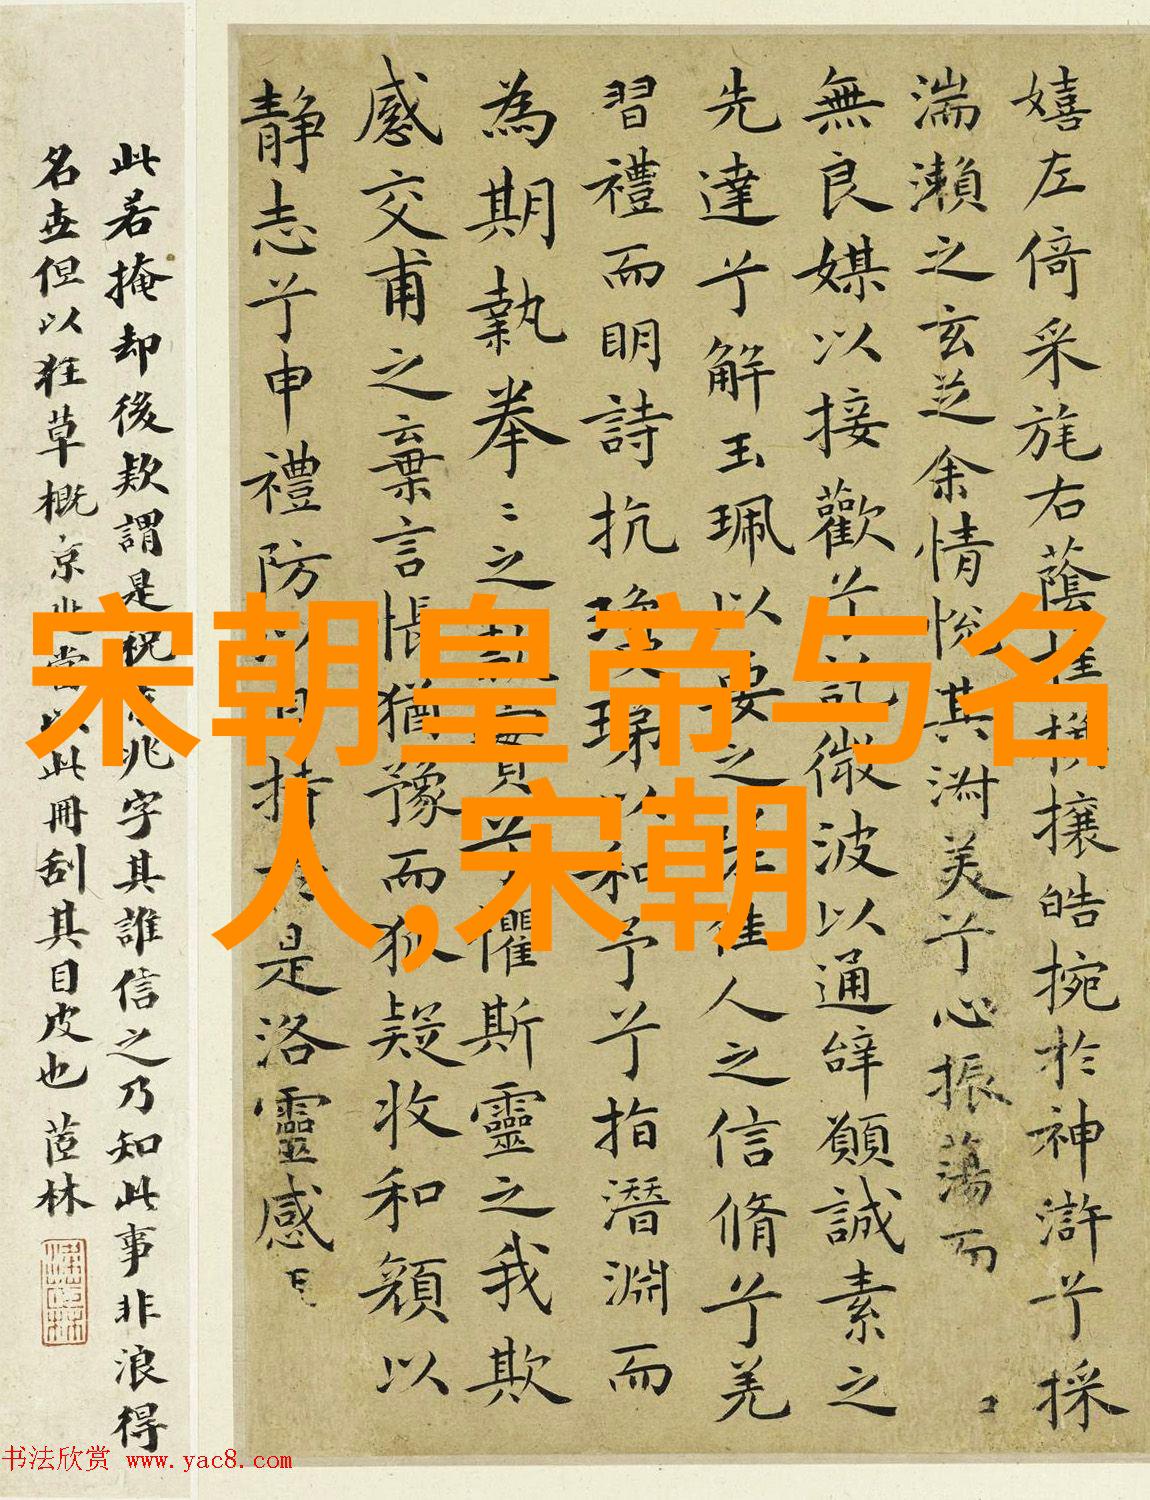 宋朝皇帝与名
人,宋朝
嬉左倚采旄右蔭桂旗攘皓捥於神滸兮採
湍瀨之玄芝余情悅其淑美兮心振蕩而
無良媒以接歡兮託微波以通辭願誠素之
先達兮解玉珮以要之嗟佳人之信脩兮羌
習禮而明詩抗瓊珶以和予兮兮指潛淵而
為期執拳〻之款實兮懼斯靈之我欺
感交甫之棄言悵猶豫而狐疑收和顏以
靜志兮申禮防以自持於是洛靈感
此若掩却後款謂是祝京兆字其誰信之乃知此事非浪得
名世但以狂草概京兆當以此冊刮其目皮也 茝林
书法欣赏 www.yac8.com